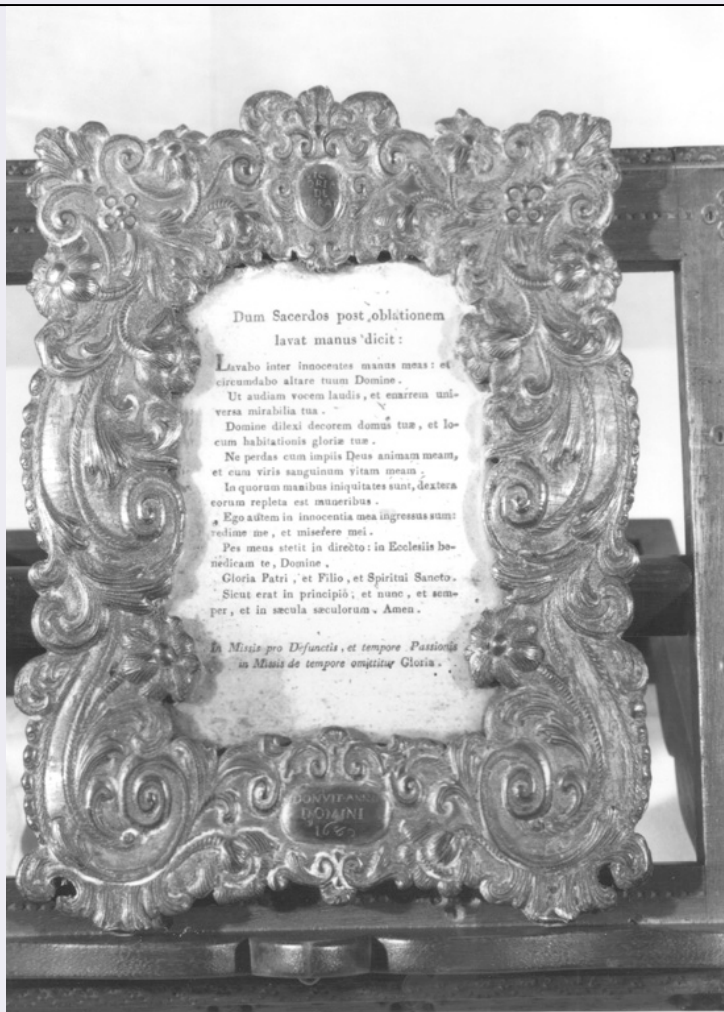 Dum Sacerdos post oblationem
lavat manus dicit:
Lavabo inter innocentes manus meas: et
circumdabo altare tuum Domine.
Ut audiam vocem laudis, et enarrem uni-
versa mirabilia tua.
Domine dilexi decorem domus tuæ, et lo-
cum habitationis gloriæ tuæ.
Ne perdas cum impiis Deus animam meam,
et cum viris sanguinum vitam meam.
In quorum manibus iniquitates sunt, dextera
eorum repleta est muneribus.
Ego autem in innocentia mea ingressus sum:
redime me, et miserere mei.
Pes meus stetit in directo: in Ecclesiis be-
nedicam te, Domine.
Gloria Patri, et Filio, et Spiritui Sancto.
Sicut erat in principio; et nunc, et sem-
per, et in sæcula sæculorum. Amen.
In Missis pro Defunctis, et tempore Passionis
in Missis de tempore omittitur Gloria.
DOMINI